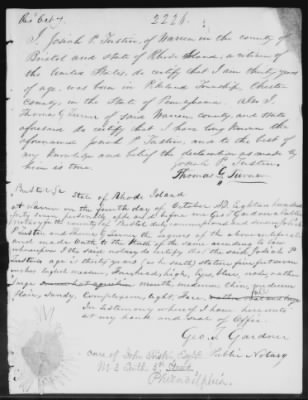 Rec Oct 7
2226.
I Josiah P. Fustin, of Warren in the county of
Bristol and state of Rhode Island, a citizen of
the United States, do certify that I am thirty years
of age, was born in Township, Chester
County, in the State of Pennsylvania. Also I
Thomas G Turner of said Warren county and state
aforesaid do certify that I have long known the
aforenamed Josiah P. Fustin, and to the best of
my knowledge and belief the declaration made by
him is true.
Josiah P. Fustin
Thomas G. Turner
Bristol Sc State of Rhode Island
At Warren on the fourth day of October AD eighteen hundred
forty personally appeared before me Geo. S. Gardner a Public
Notary for the county of Bristol duly commissioned and sworn Josiah
P. Fustin and Thomas G. Turner the signers of the above certificate
and made Oath to the truth of the same according to law
wherefore I the said notary do certify that the said Josiah P.
Fustin's age is thirty years stature, five feet seven
inches English measure, Forehead, high, Eyes, blue, nose, rather
large mouth, medium, Chin, medium
Hair, Sandy, Complexion, light, Face, full
In testimony whereof I have hereunto
set my hand and seal of Office.
Geo. S. Gardner
Public Notary
care of John
No 3 South 5th Street
Philadelphia